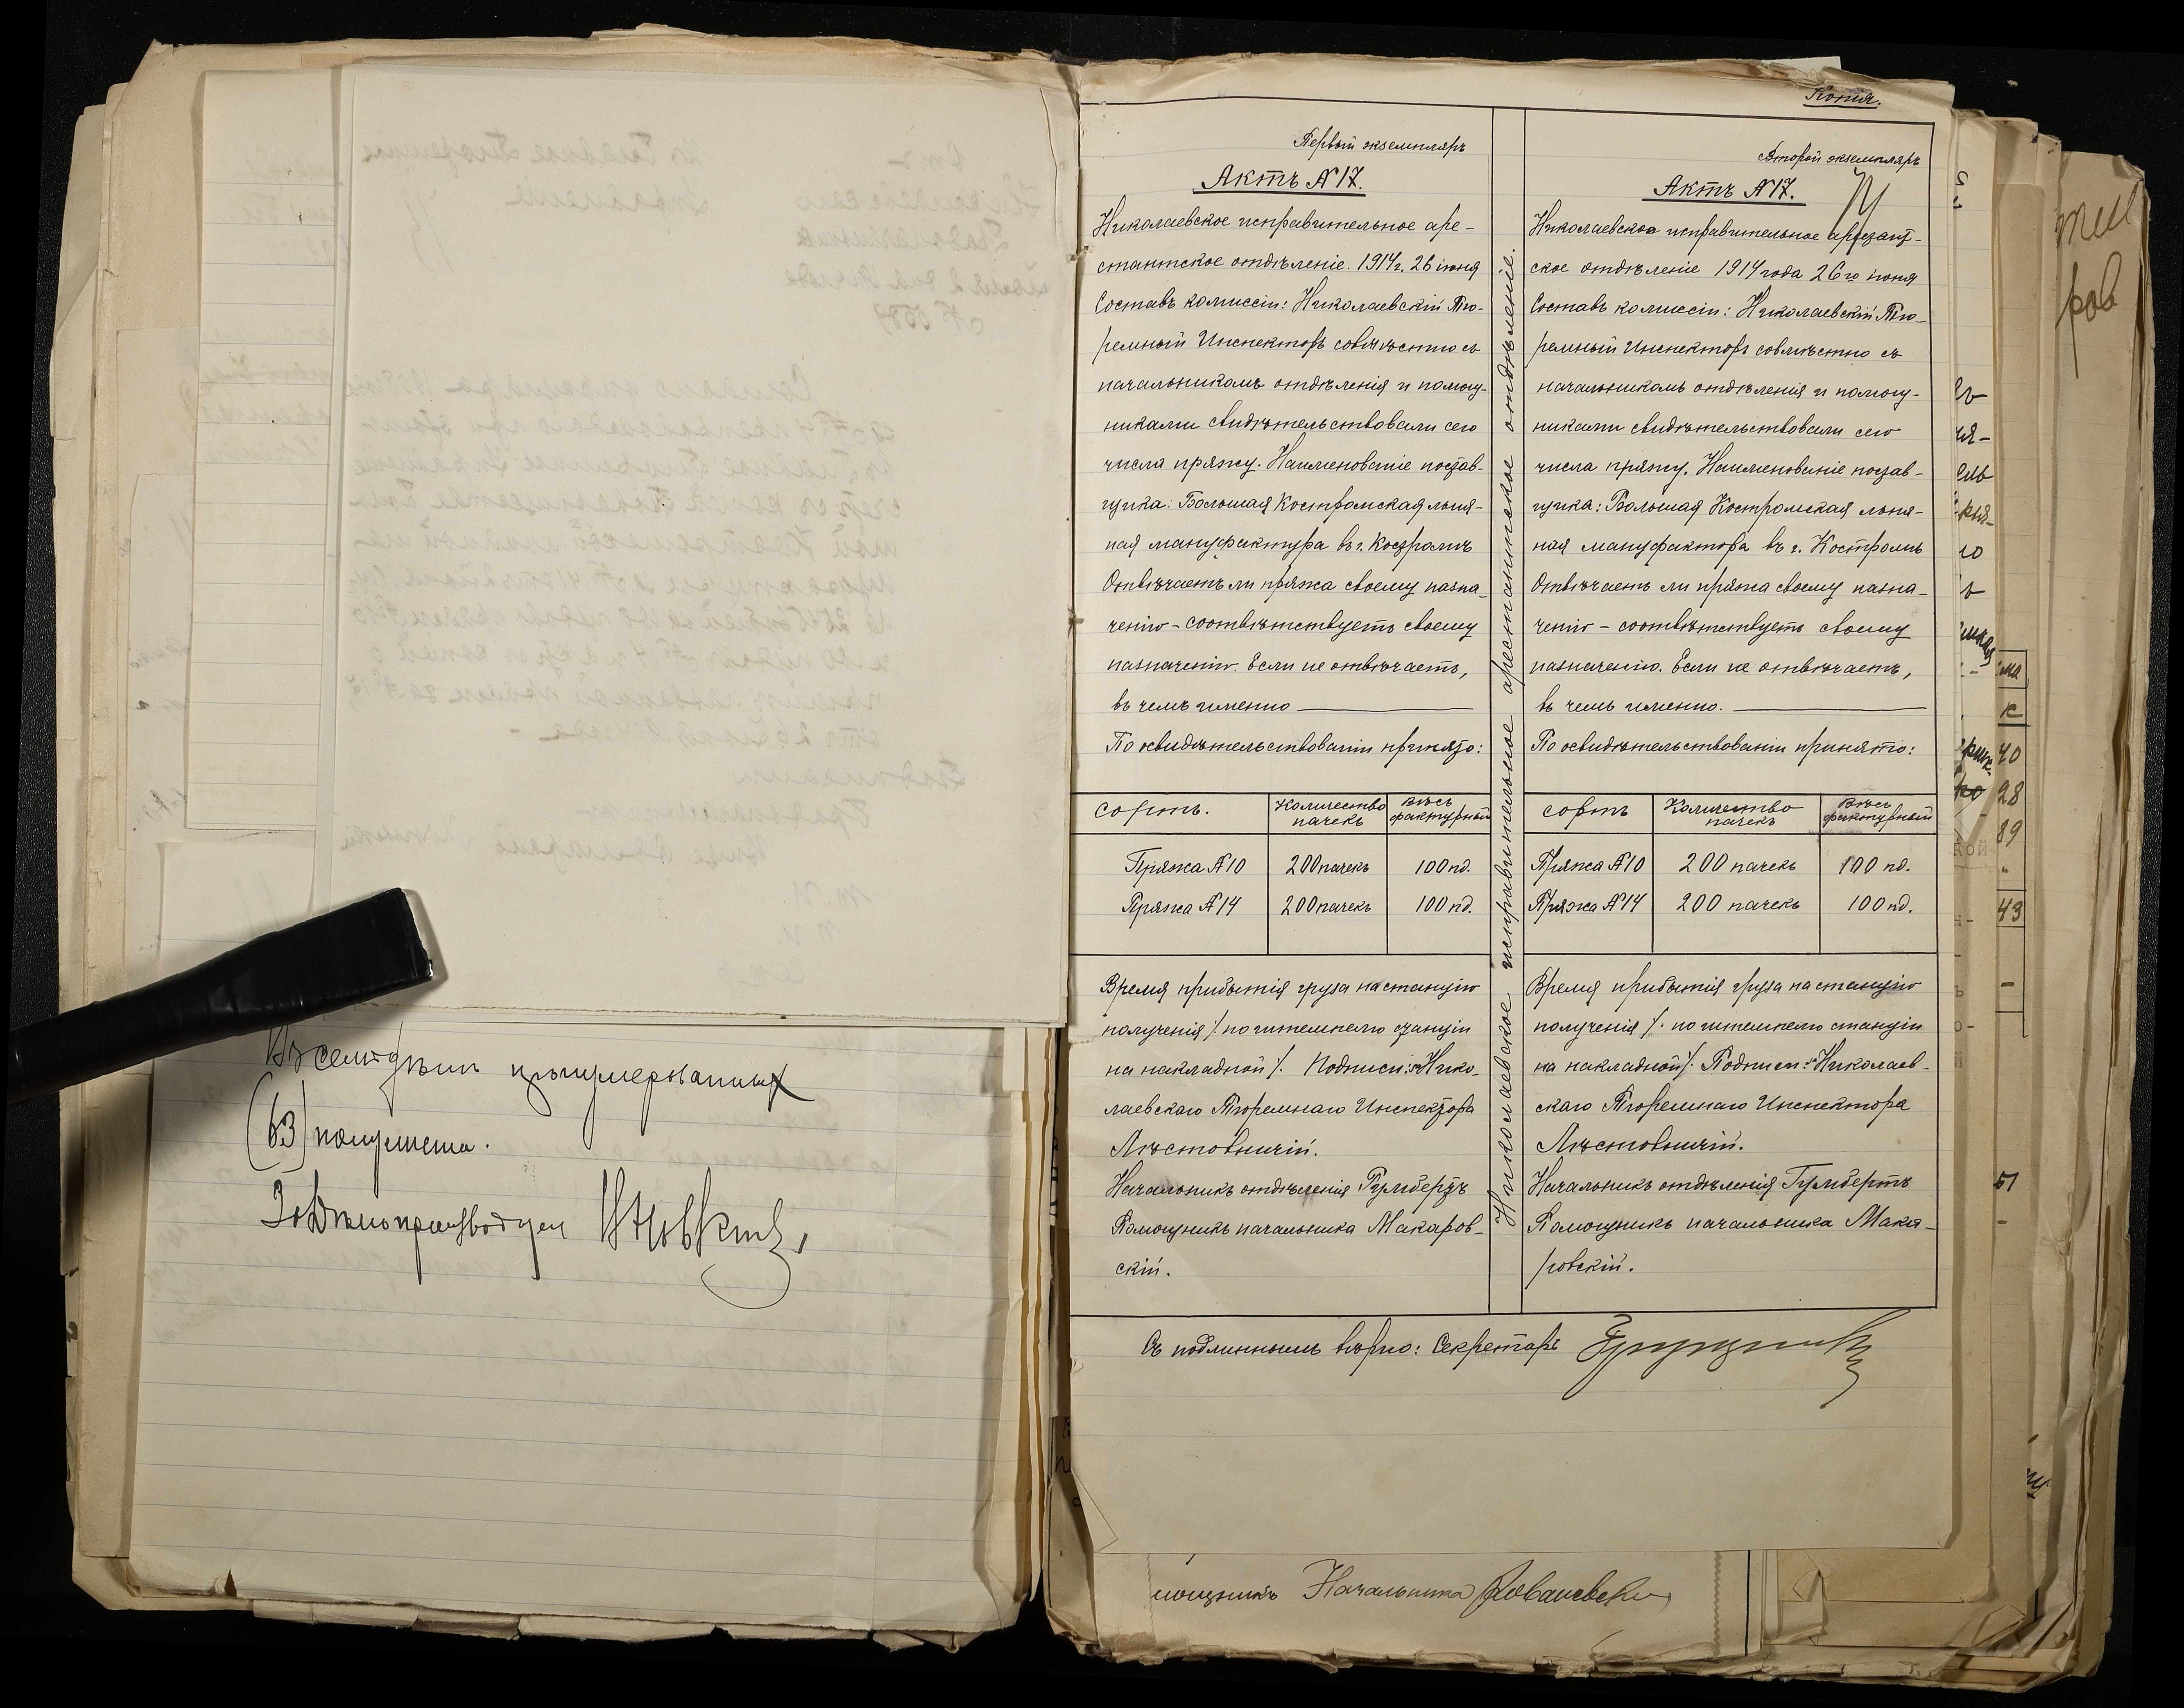 Копія.
Первый экземпляръ
Актъ №17.
Николаевское исправительное аре-
стантское отдѣленіе. 1914г. 26 іюня
Составъ комиссіи: Николаевскій Тю-
ремный Инспекторъ совмѣстно съ
начальникомъ отдѣленія и помощ-
никами свидѣтельствовали сего
числа пряжу. Наименованіе постав-
щика: Большая Костромская льня-
ная мануфактура въ г. Костромѣ
Отвѣчаетъ ли пряжа своему назна-
ченію - соотвѣтствуетъ своему
назначенію. Если не отвѣчаетъ,
въ чемъ именно
По освидѣтельствованіи принято:
сортъ. Количество пачекъ Вѣсъ фактурный
Пряжа №10 200 пачекъ 100 пд.
Пряжа №14 200 пачекъ 100 пд.
Время прибытія груза на станцію
полученія /: по штемпелю станціи
на накладной /. Подписи: Нико-
лаевскаго Тюремнаго Инспектора
Лѣстовничій.
Начальникъ отдѣленія Гумбертъ
Помощникъ начальника Макаров-
скій.
Николаевское исправительное арестантское отдѣленіе.
Второй экземпляръ
Актъ №17.
Николаевское исправительное арестант-
ское отдѣленіе 1914 года 26го іюня
Составъ комиссіи: Николаевскій Тю-
ремный Инспекторъ совмѣстно съ
начальникомъ отдѣленія и помощ-
никами свидѣтельствовали сего
числа пряжу. Наименованіе постав-
щика: Большая Костромская льня-
ная мануфактора въ г. Костромѣ
Отвѣчаетъ ли пряжа своему назна-
ченію - соотвѣтствуетъ своему
назначенію. Если не отвѣчаетъ,
въ чемъ именно.
По освидѣтельствованіи принято:
сортъ Количество пачекъ Вѣсъ фактурный
Пряжа №10 200 пачекъ 100 пд.
Пряжа №14 200 пачекъ 100 пд.
Время прибытія груза на станцію
полученія /: по штемпелю станціи
на накладной /. Подписи: Николаев-
скаго Тюремнаго Инспектора
Лѣстовничій.
Начальникъ отдѣленія Гумбертъ
Помощникъ начальника Мака-
ровскій.
Съ подлиннымъ вѣрно: Секретарь
мощникъ Начальника
(63) полулиста.
40
28
89
43
51